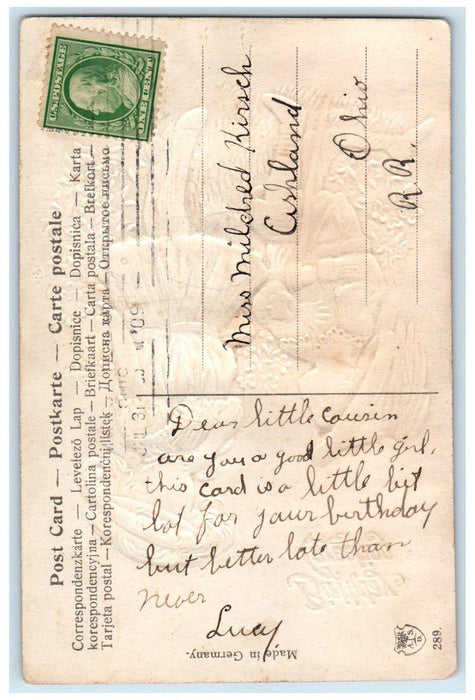 Post Card — Postkarte — Carte postale
Correspondenzkarte — Levelező Lap — Dopisnice — Dopisnica — Karta
korespondencyjna — Cartolina postale — Briefkaart — Carta postala — Brefkort —
Tarjeta postal — Korespondenčni listek — Дописна карта — Открытое письмо
U.S. POSTAGE
ONE CENT
OHIO
JUL 31
'09
Miss Mildred Kirsch
Ashland
Ohio
R.R.
Dear little cousin
are you a good little girl,
this card is a little bit
lat for your birthday
but better late than
never
Lucy
Made in Germany.
289.